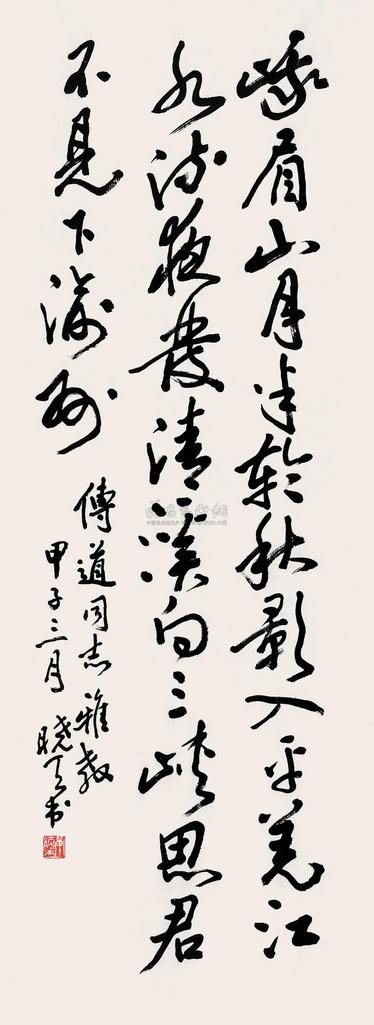 峨眉山月半轮秋影入平羌江
水流夜发清溪向三峡思君
不见下渝州
傅道同志雅教
甲子三月 晓天书